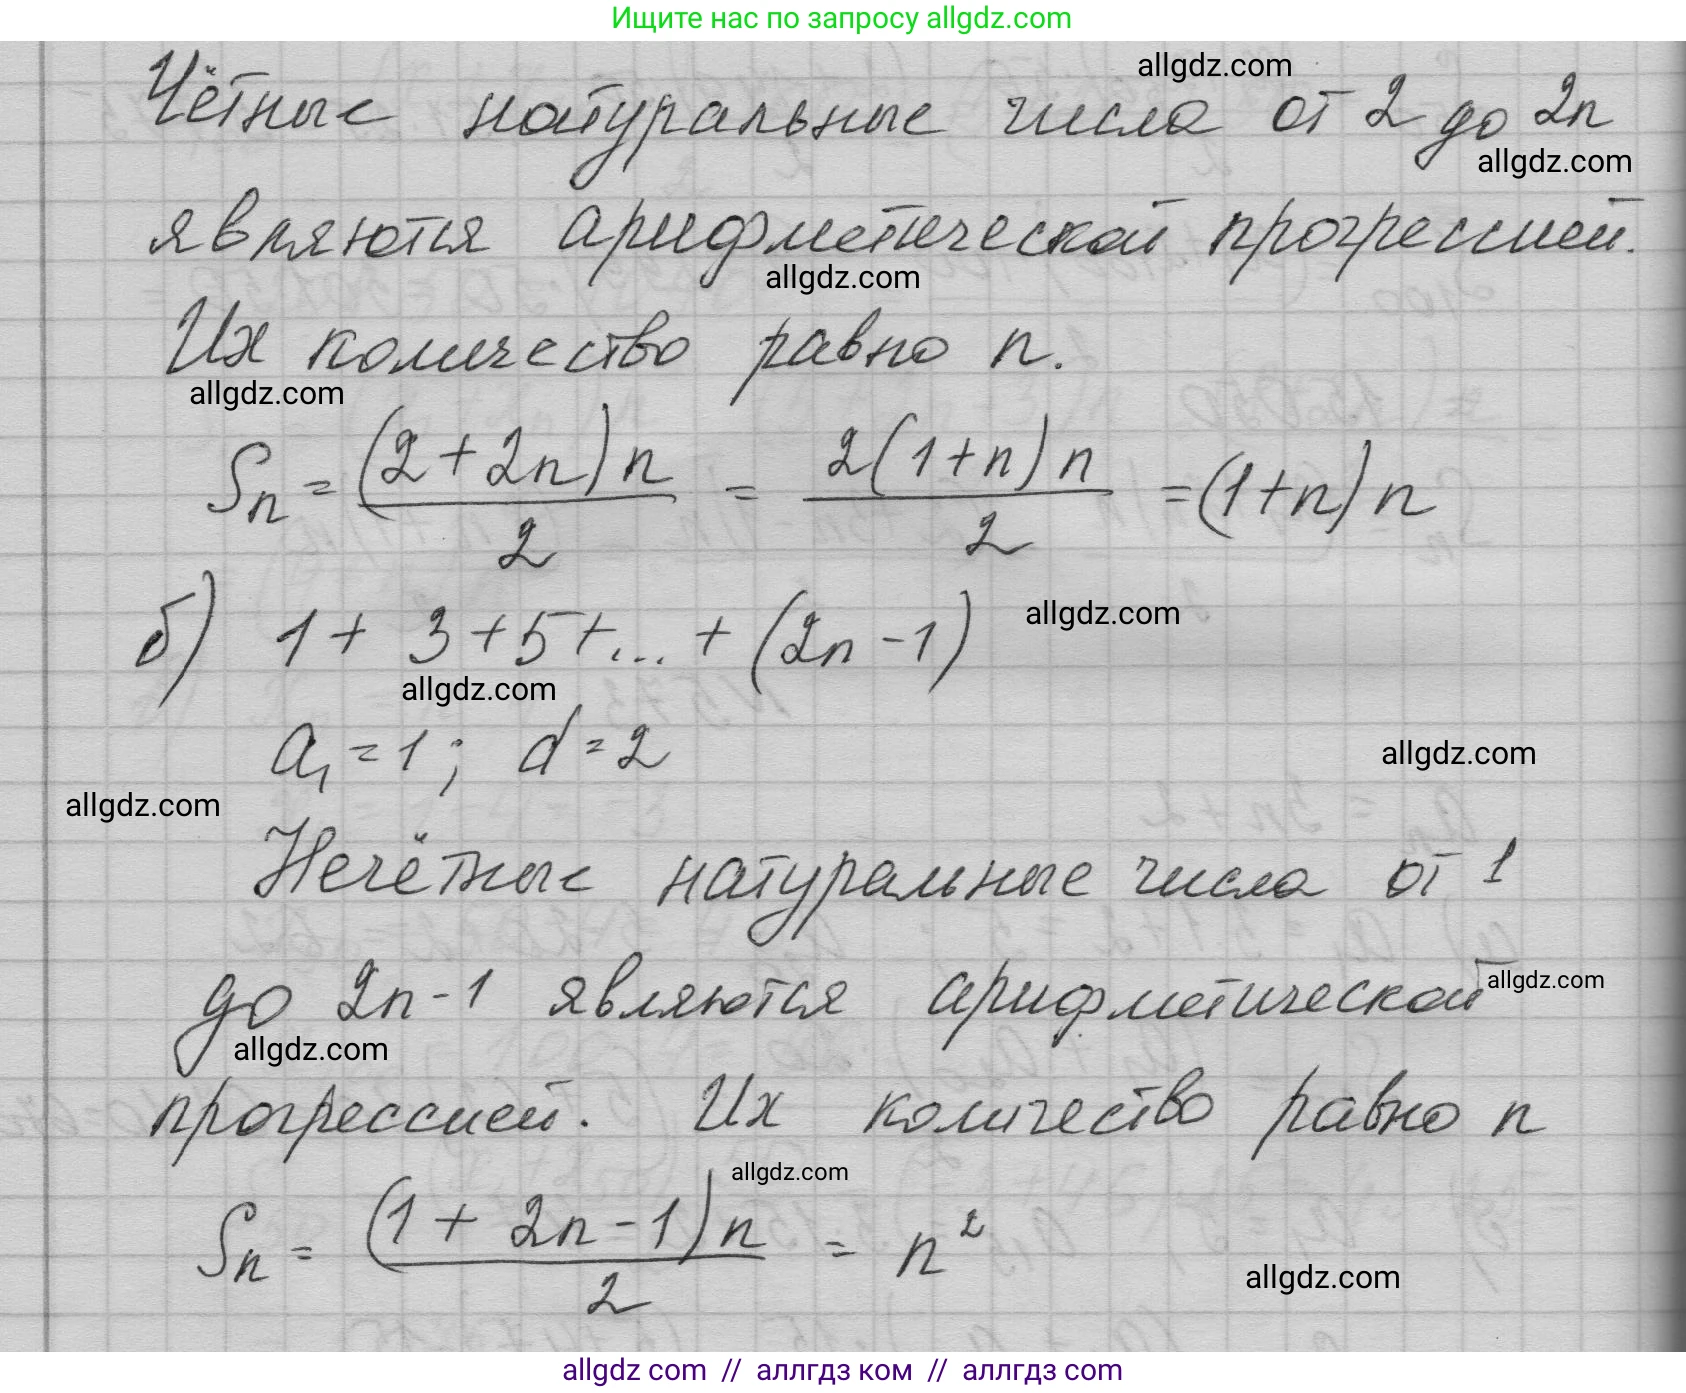 Ищите нас по запросу allgdz.com
allgdz.com
Чётные натуральные числа от 2 до 2n
allgdz.com
являются арифметической прогрессией.
allgdz.com
Их количество равно n.
allgdz.com
Sₙ = (2+2n)n / 2 = 2(1+n)n / 2 = (1+n)n
б) 1 + 3 + 5 + ... + (2n - 1)
allgdz.com
allgdz.com
a₁ = 1; d = 2
allgdz.com
allgdz.com
Нечётные натуральные числа от 1
до 2n-1 являются арифметической
allgdz.com
allgdz.com
прогрессией. Их количество равно n
allgdz.com
Sₙ = (1 + 2n - 1)n / 2 = n²
allgdz.com
allgdz com // аллгдз ком // аллгдз com